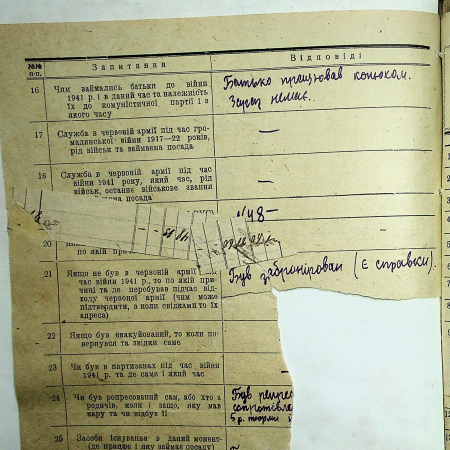 №№ п-п.
Запитання
Відповіді
16
Чим займались батьки до війни
1941 р. і в даний час та належність
їх до комуністичної партії і з
якого часу
Батько працював конюхом.
Зараз немає.
17
Служба в червоній армії під час гро-
мадянської війни 1917—22 років,
рід військ та займаєма посада
—
18
Служба в червоній армії під час
війни 1941 року, який час, рід
військ, останнє військове звання
посада
—
20
по якій
21
Якщо не був в червоній армії
час війни 1941 р., то по якій при-
чині та де перебував підчас від-
ходу червоної армії (чим може
підтвердити, а коли свідками то їх
адреса)
Був заброніірован (Є справки).
22
Якщо був евакуйований, то коли по-
вернувся та звідки саме
23
Чи був в партизанах під час війни
1941 р. та де саме і який час
24
Чи був репресований сам, або хто з
родичів, коли і защо, яку мав
кару та чи відбув її
Був репрес
5 р. тюрми
25
Засоби існування в даний момент
(де працює і яку займає посаду)